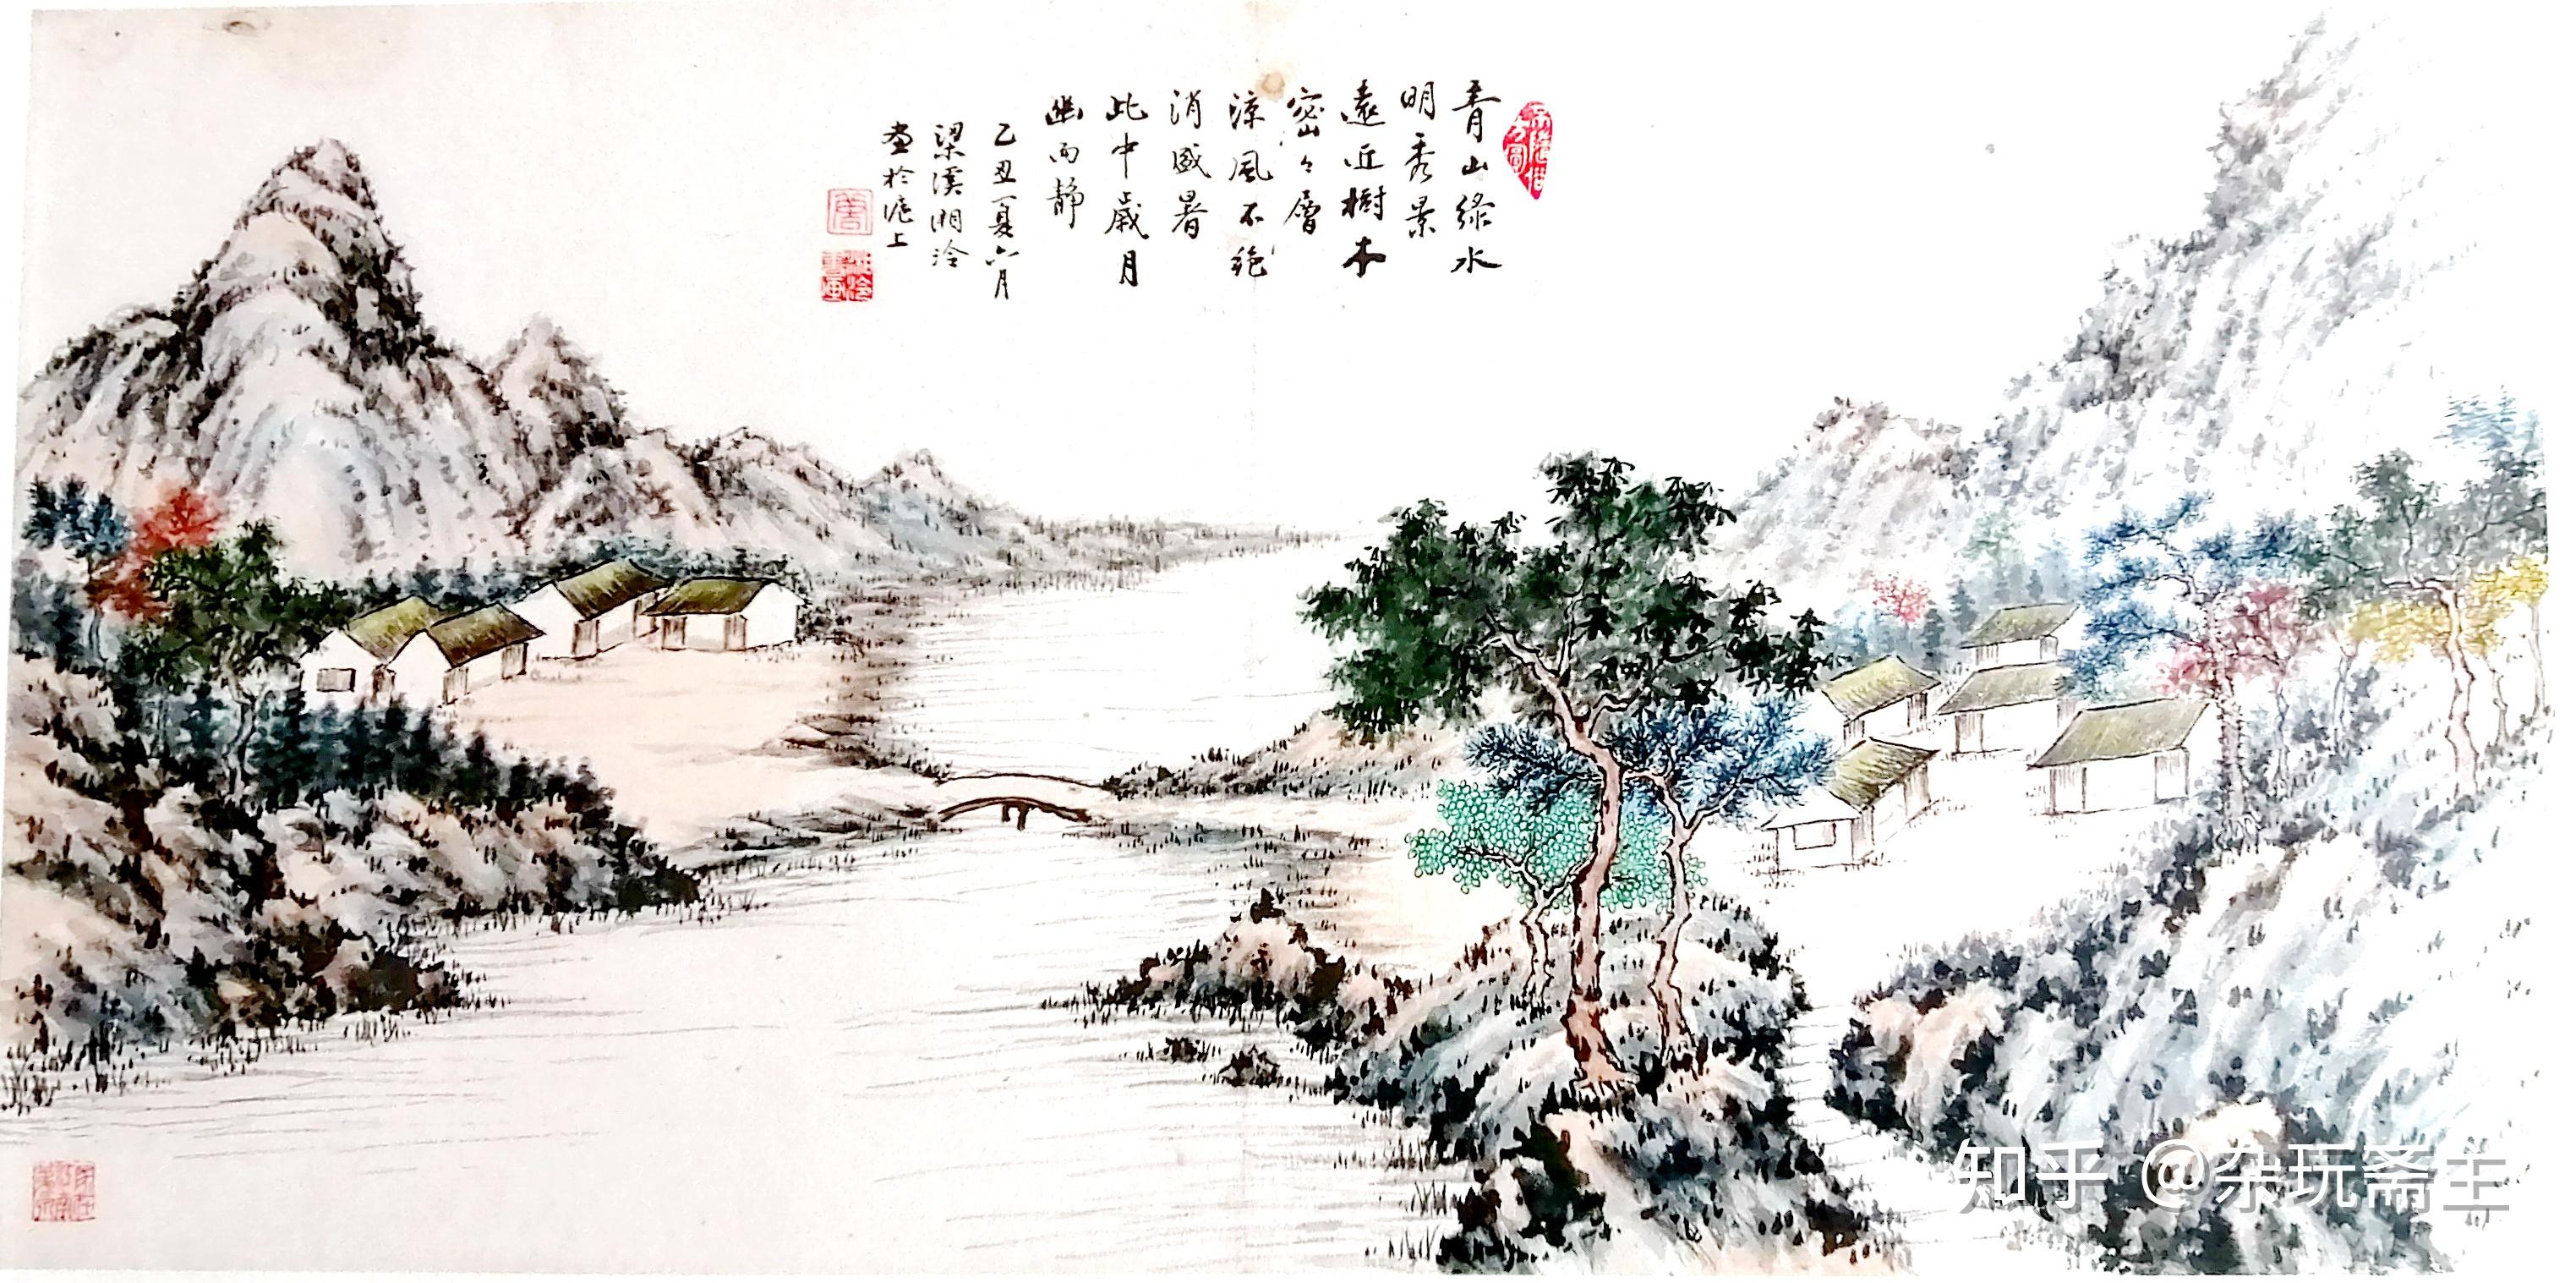 青山綠水
明秀景
遠近樹木
密々層
涼風不絶
消盛暑
此中歲月
幽而静
乙丑夏六月
梁溪湘泠
畫於滬上
知乎 @杂玩斋主